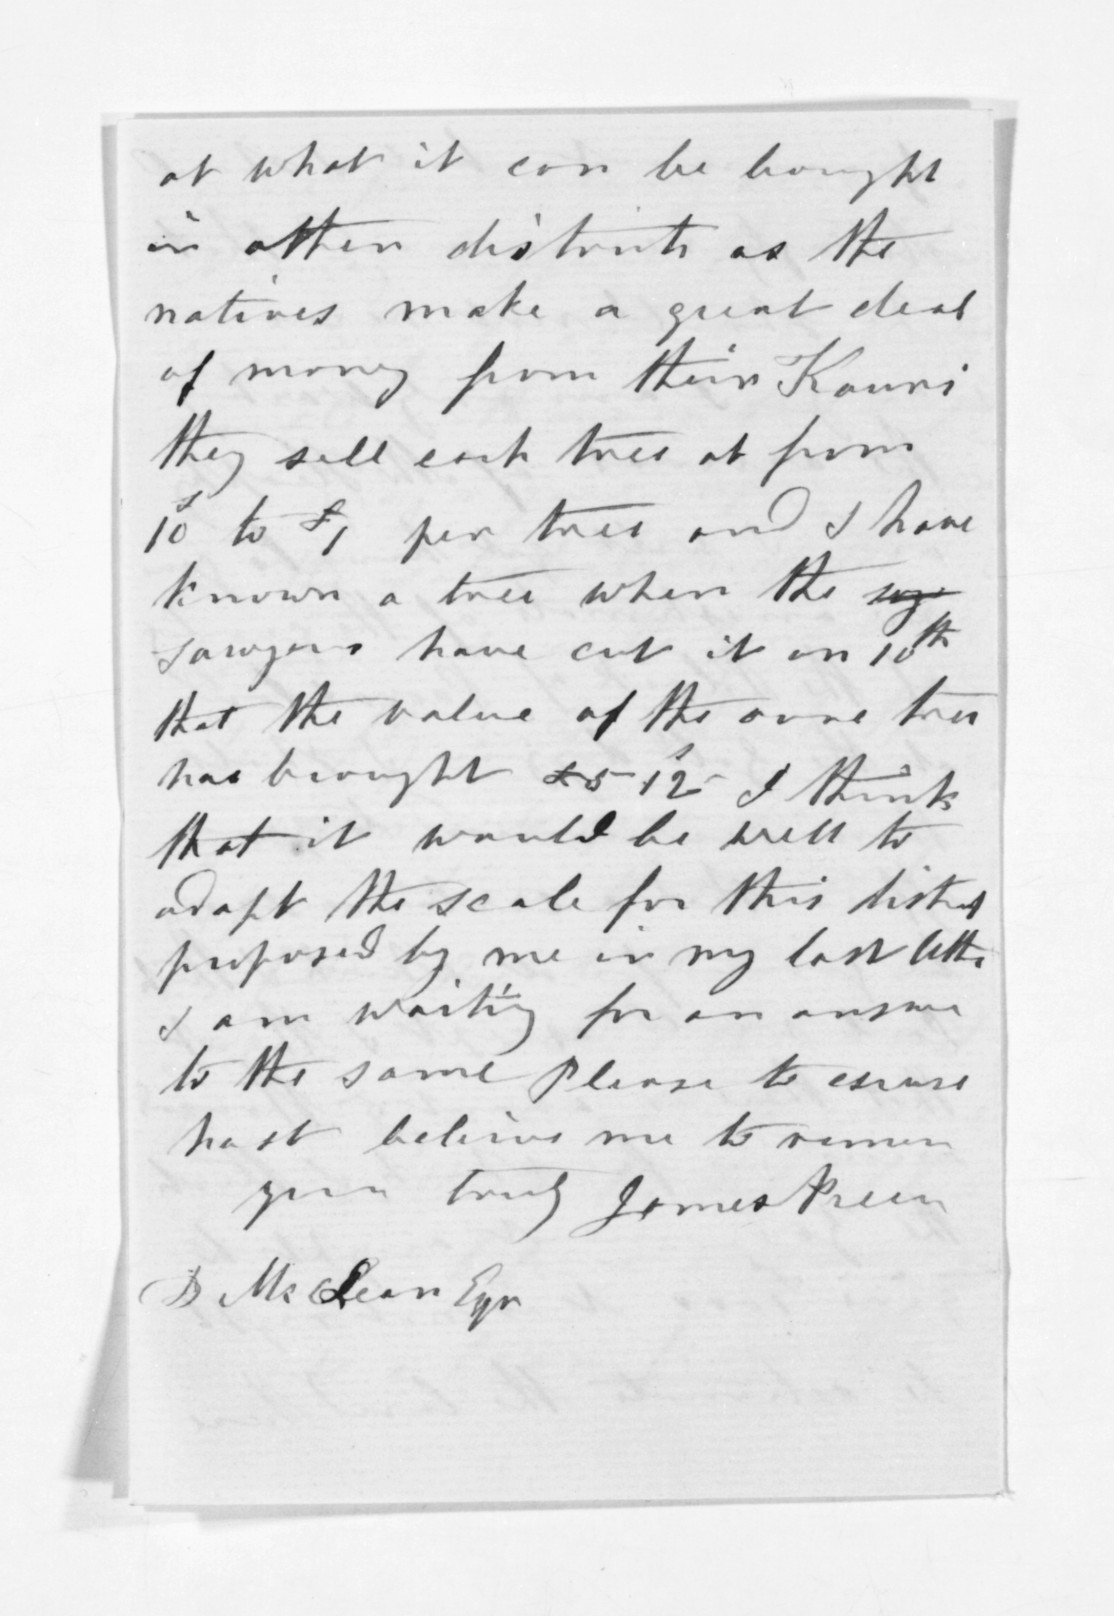 at what it can be bought
in other districts as the
natives make a great deal
of money from their Kauri
they sell each tree at from
10s to £1 per tree and I have
known a tree when the
sawyers have cut it on 10th
that the value of the one tree
has brought £5 12s I think
that it would be well to
adapt the scale for this district
proposed by me in my last letter
I am waiting for an answer
to the same Please to excuse
hast believe me to remain
your truly James Preece
D McLean Eqr